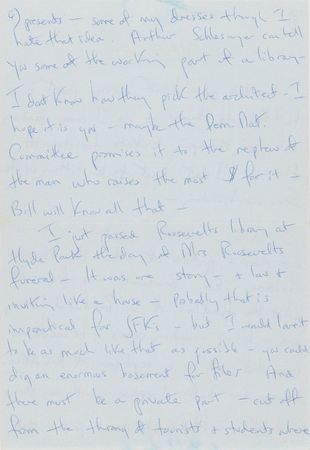 2) presents – some of my dresses though I
hate that idea. Arthur Schlesinger can tell
you some of the working part of a library –
I dont know how they pick the architect – I
hope it is you – maybe the Dem Nat.
Committee promises it to the nephew of
the man who raises the most $ for it –
Bill will know all that –
I just passed Roosevelts library at
Hyde Park the day of Mrs Roosevelts
funeral – It was one story – + low +
inviting like a house – Probably that is
impractical for JFKs – but I would love it
to be as much like that as possible – you could
dig an enormous basement for files And
there must be a private part – cut off
from the throng of tourists + students where